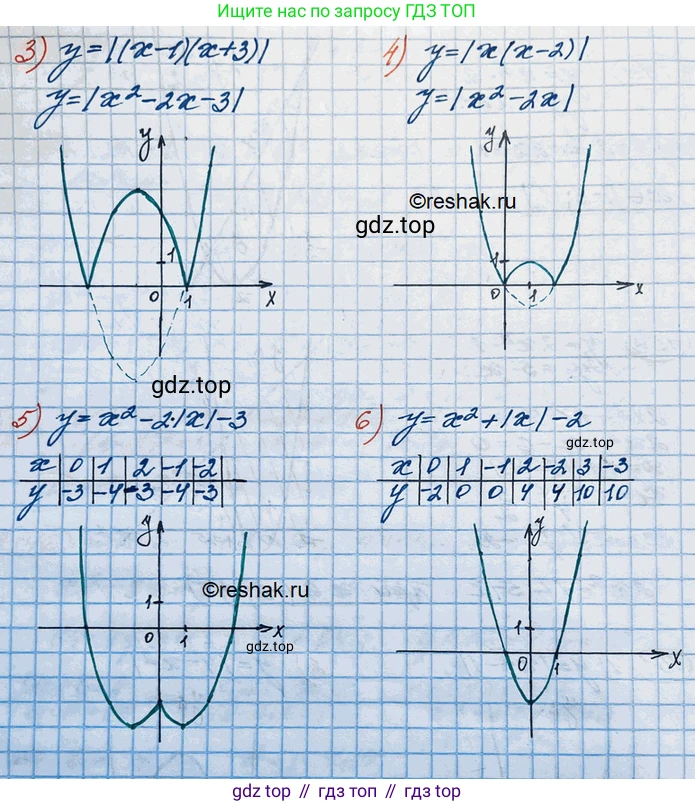 Ищите нас по запросу ГДЗ ТОП
3) y=|(x-1)(x+3)|
y=|x²-2x-3|
4) y=|x(x-2)|
y=|x²-2x|
y
1
0
1
x
y
1
0
1
x
©reshak.ru
gdz.top
gdz.top
5) y=x²-2·|x|-3
x 0 1 2 -1 -2
y -3 -4 -3 -4 -3
6) y=x²+|x|-2
gdz.top
x 0 1 -1 2 -2 3 -3
y -2 0 0 4 4 10 10
y
1
0
1
x
©reshak.ru
gdz.top
y
1
0
1
x
gdz.top // гдз топ // gdz.top